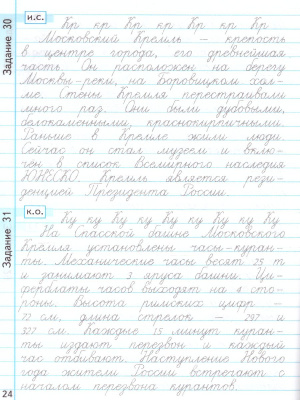 Задание 30
и.с.
Кр кр Кр кр Кр кр Кр
Московский Кремль – крепость
в центре города, его древнейшая
часть. Он расположен на берегу
Москвы-реки, на Боровицком хол-
ме. Стены Кремля перестраивали
много раз. Они были дубовыми,
белокаменными, краснокирпичными.
Раньше в Кремле жили люди.
Сейчас он стал музеем и вклю-
чён в список Всемирного наследия
ЮНЕСКО. Кремль является рези-
денцией Президента России.
Задание 31
к.о.
Ку ку Ку Ку Ку Ку ку Ку
На Спасской башне Московского
Кремля установлены часы-куран-
ты. Механические часы весят 25 т
и занимают 3 яруса башни. Ци-
ферблаты часов выходят на 4 сто-
роны. Высота римских цифр –
72 см, длина стрелок – 297 и
327 см. Каждые 15 минут куран-
ты издают перезвон и каждый
час отбивают. Наступление Нового
года жители России встречают с
началом перезвона курантов.
24